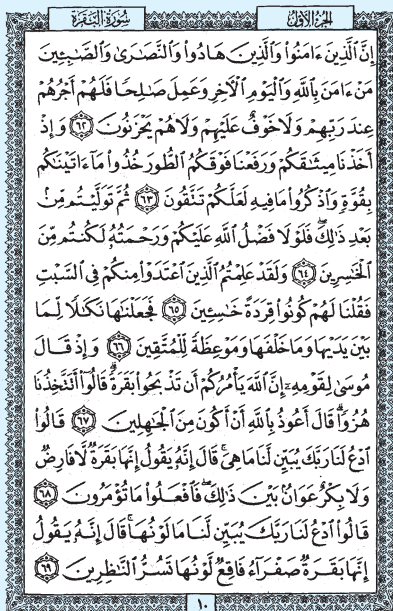 الجزء الأول
سورة البقرة
إِنَّ الَّذِينَ ءَامَنُوا وَالَّذِينَ هَادُوا وَالنَّصَارَىٰ وَالصَّابِئِينَ
مَنْ ءَامَنَ بِاللَّهِ وَالْيَوْمِ الْآخِرِ وَعَمِلَ صَالِحًا فَلَهُمْ أَجْرُهُمْ
عِندَ رَبِّهِمْ وَلَا خَوْفٌ عَلَيْهِمْ وَلَا هُمْ يَحْزَنُونَ ٦٢ وَإِذْ
أَخَذْنَا مِيثَاقَكُمْ وَرَفَعْنَا فَوْقَكُمُ الطُّورَ خُذُوا مَا ءَاتَيْنَاكُم
بِقُوَّةٍ وَاذْكُرُوا مَا فِيهِ لَعَلَّكُمْ تَتَّقُونَ ٦٣ ثُمَّ تَوَلَّيْتُم مِّن
بَعْدِ ذَٰلِكَ ۖ فَلَوْلَا فَضْلُ اللَّهِ عَلَيْكُمْ وَرَحْمَتُهُ لَكُنتُم مِّنَ
الْخَاسِرِينَ ٦٤ وَلَقَدْ عَلِمْتُمُ الَّذِينَ اعْتَدَوْا مِنكُمْ فِي السَّبْتِ
فَقُلْنَا لَهُمْ كُونُوا قِرَدَةً خَاسِئِينَ ٦٥ فَجَعَلْنَاهَا نَكَالًا لِّمَا
بَيْنَ يَدَيْهَا وَمَا خَلْفَهَا وَمَوْعِظَةً لِّلْمُتَّقِينَ ٦٦ وَإِذْ قَالَ
مُوسَىٰ لِقَوْمِهِ إِنَّ اللَّهَ يَأْمُرُكُمْ أَن تَذْبَحُوا بَقَرَةً ۖ قَالُوا أَتَتَّخِذُنَا
هُزُوًا ۖ قَالَ أَعُوذُ بِاللَّهِ أَنْ أَكُونَ مِنَ الْجَاهِلِينَ ٦٧ قَالُوا
ادْعُ لَنَا رَبَّكَ يُبَيِّن لَّنَا مَا هِيَ ۚ قَالَ إِنَّهُ يَقُولُ إِنَّهَا بَقَرَةٌ لَّا فَارِضٌ
وَلَا بِكْرٌ عَوَانٌ بَيْنَ ذَٰلِكَ ۖ فَافْعَلُوا مَا تُؤْمَرُونَ ٦٨
قَالُوا ادْعُ لَنَا رَبَّكَ يُبَيِّن لَّنَا مَا لَوْنُهَا ۚ قَالَ إِنَّهُ يَقُولُ
إِنَّهَا بَقَرَةٌ صَفْرَاءُ فَاقِعٌ لَّوْنُهَا تَسُرُّ النَّاظِرِينَ ٦٩
١٠